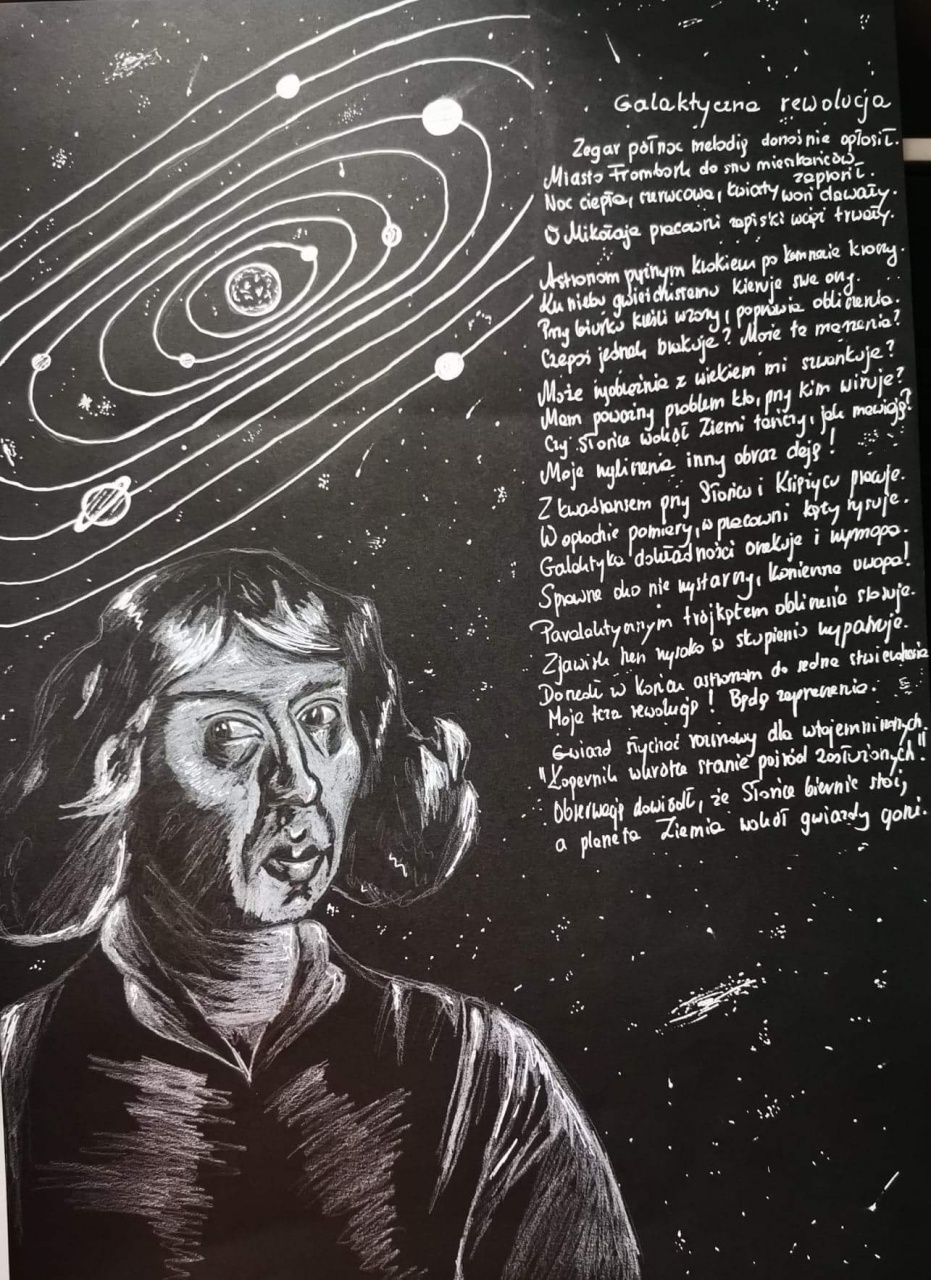 Galaktyczna rewolucja
Zegar północ melodią donośnie ogłosił.
Miasto Frombork do snu mieszkańców
zaprosił.
Noc ciepła, czerwcowa, kwiaty woń dawały.
W Mikołaja pracowni zapiski wciąż trwały.
Astronom pilnym krokiem po komnacie kroczy.
Ku niebu gwieździstemu kieruje swe oczy.
Przy biurku kreśli wzory, poprawia obliczenia.
Czegoś jednak brakuje? Może to marzenia?
Może wyobraźnia z wiekiem mi szwankuje?
Mam poważny problem kto, przy kim wiruje?
Czy Słońce wokół Ziemi tańczy, jak mawiają?
Moje wyliczenia inny obraz dają!
Z kwadransem przy Słońcu i Księżycu pracuje.
W oplocie pomiary, w pracowni kąty rysuje.
Galaktyka dokładności oczekuje i wymaga.
Sprawne oko nie wystarczy, konieczna uwaga!
Paralaktycznym trójkątem obliczenia stosuje.
Zjawisk hen wysoko w skupieniu wypatruje.
Doszedł w końcu astronom do sedna stwierdzenia
Moja teza rewolucją! Będą zaprzeczenia.
Gwiazd słychać rozmowy dla wtajemniczonych.
"Kopernik wkrótce stanie pośród zasłużonych."
Obserwacją dowiódł, że Słońce biernie stoi,
a planeta Ziemia wokół gwiazdy goni.